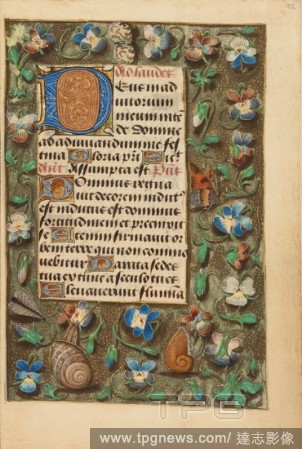 Ad laudes
Deus in ad
iutorium
meum inten
de Domine
ad adiuuandum me fes
tina Gloria pri Sicut
Assumpta est
Dominus regna
uit decorem indut
est indutus est dominus
fortitudinem et precinxit
se Etenim firmauit or
bem terre qui non commo
uebitur Parata sedes
tua ex tunc a seculo tu es
Eleuauerunt flumina
TPG
www.tpgnews.com/ 達志影像